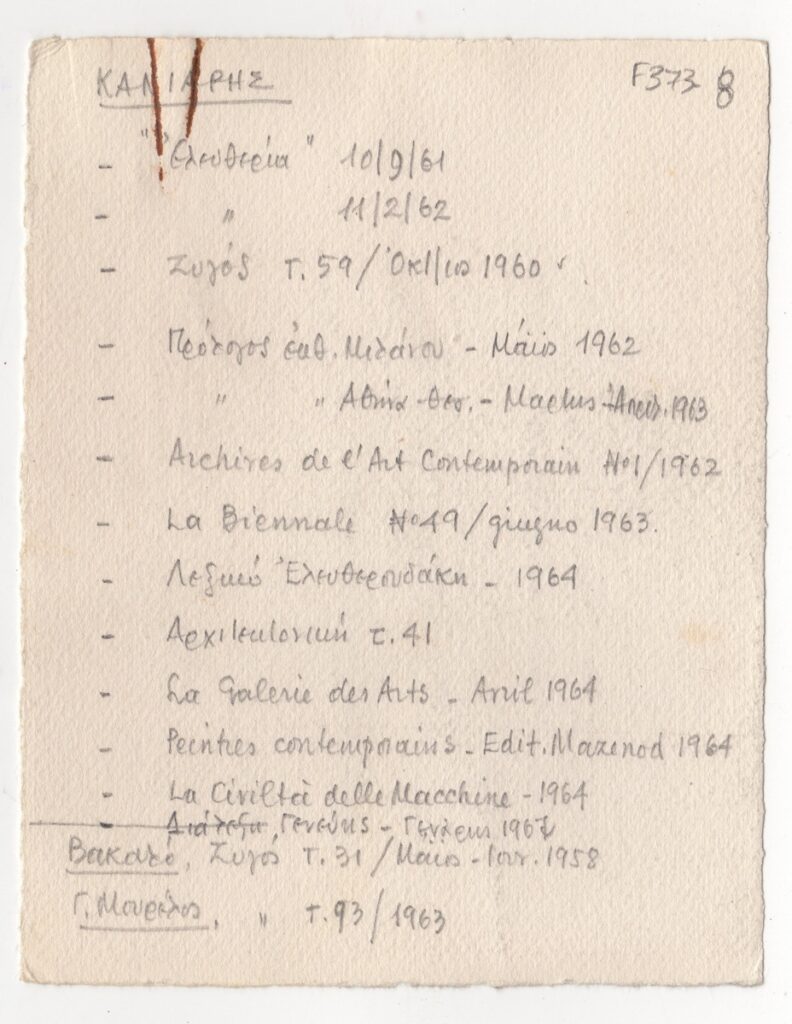 ΚΑΝΙΑΡΗΣ F373 8
- "Ἐλευθερία" 10/9/61
- " 11/2/62
- Ζυγός τ. 59/Ὀκτ/ιος 1960
- Πρόλογος ἐκθ. Μιλάνου - Μάϊος 1962
- " " Ἀθήνα - Θεσ. - 1963
- Archives de l'Art Contemporain No1/1962
- La Biennale No49/giugno 1963.
- Λεξικό Ἐλευθερουδάκη - 1964
- Αρχιτεκτονική τ. 41
- La Galerie des Arts - Avril 1964
- Peintres contemporains - Edit. Mazenod 1964
- La Civiltà delle Macchine - 1964
- Διάλεξη Γενεύης -
Βακαλό, Ζυγός τ. 31/Μάϊος - Ιουν. 1958
Γ. Μουρέλος, " τ. 93/1963